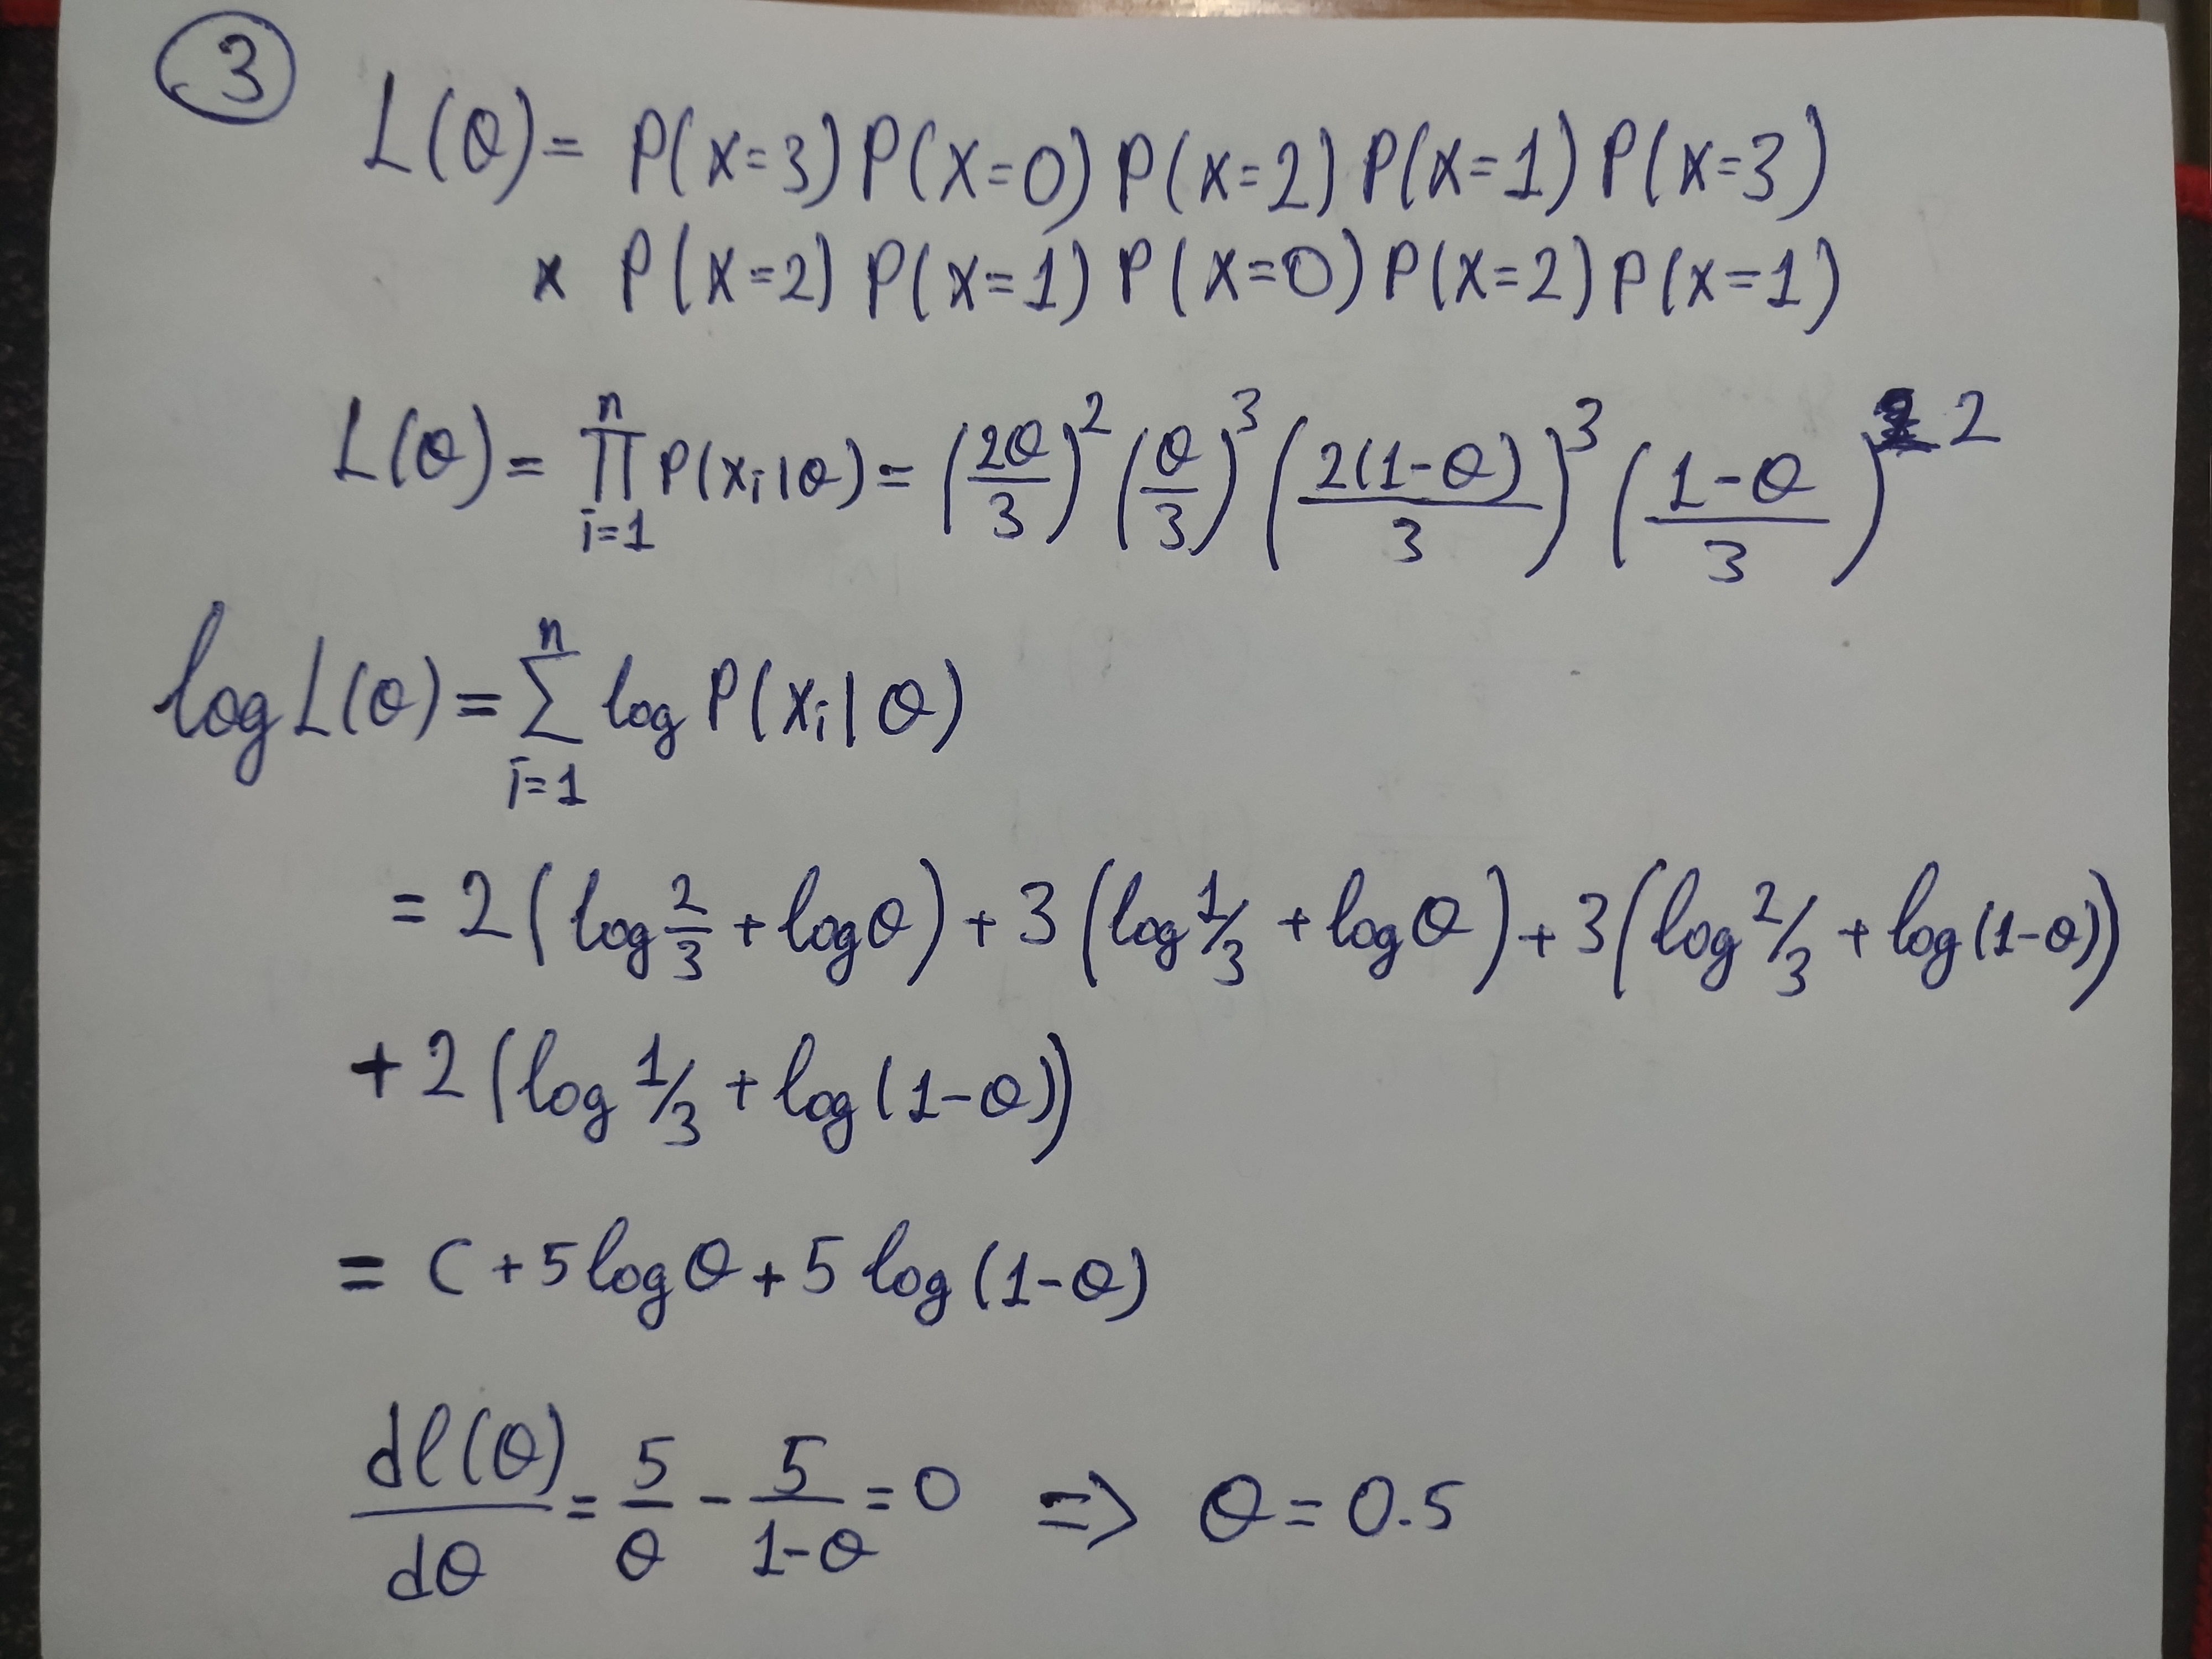 3
L(θ) = P(x=3) P(x=0) P(x=2) P(x=1) P(x=3)
× P(x=2) P(x=1) P(x=0) P(x=2) P(x=1)
L(θ) = ∏_{i=1}^{n} P(x_i|θ) = (2θ/3)^2 (θ/3)^3 (2(1-θ)/3)^3 (1-θ/3)^2
log L(θ) = ∑_{i=1}^{n} log P(x_i|θ)
= 2 (log 2/3 + log θ) + 3 (log 1/3 + log θ) + 3 (log 2/3 + log (1-θ))
+ 2 (log 1/3 + log (1-θ))
= C + 5 log θ + 5 log (1-θ)
dℓ(θ)/dθ = 5/θ - 5/1-θ = 0 => θ = 0.5